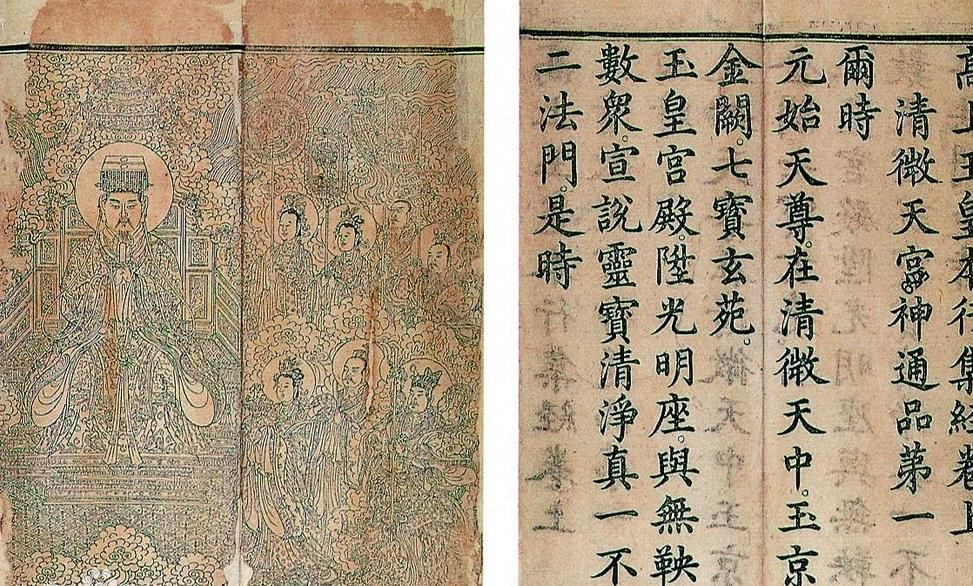 高上玉皇本行集經卷上
清微天宮神通品第一
爾時
元始天尊。在清微天中。玉京
金闕。七寶玄苑。
玉皇宮殿。陞光明座。與無鞅
數眾。宣說靈寶清淨真一不
二法門。是時